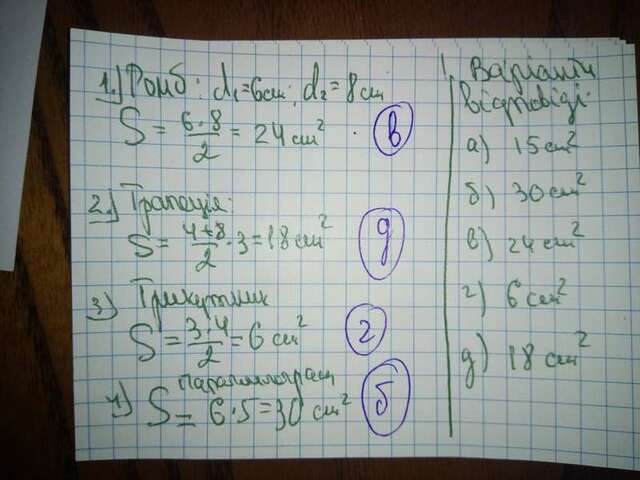 1.) Ромб: d₁=6см; d₂=8см
S = 6·8/2 = 24 см² в
2.) Трапеція:
S = 4+8/2 · 3 = 18 см² д
3) Трикутник
S = 3·4/2 = 6 см² г
4) паралелограм
S = 6·5 = 30 см² б
Варіанти
відповіді:
а) 15 см²
б) 30 см²
в) 24 см²
г) 6 см²
д) 18 см²